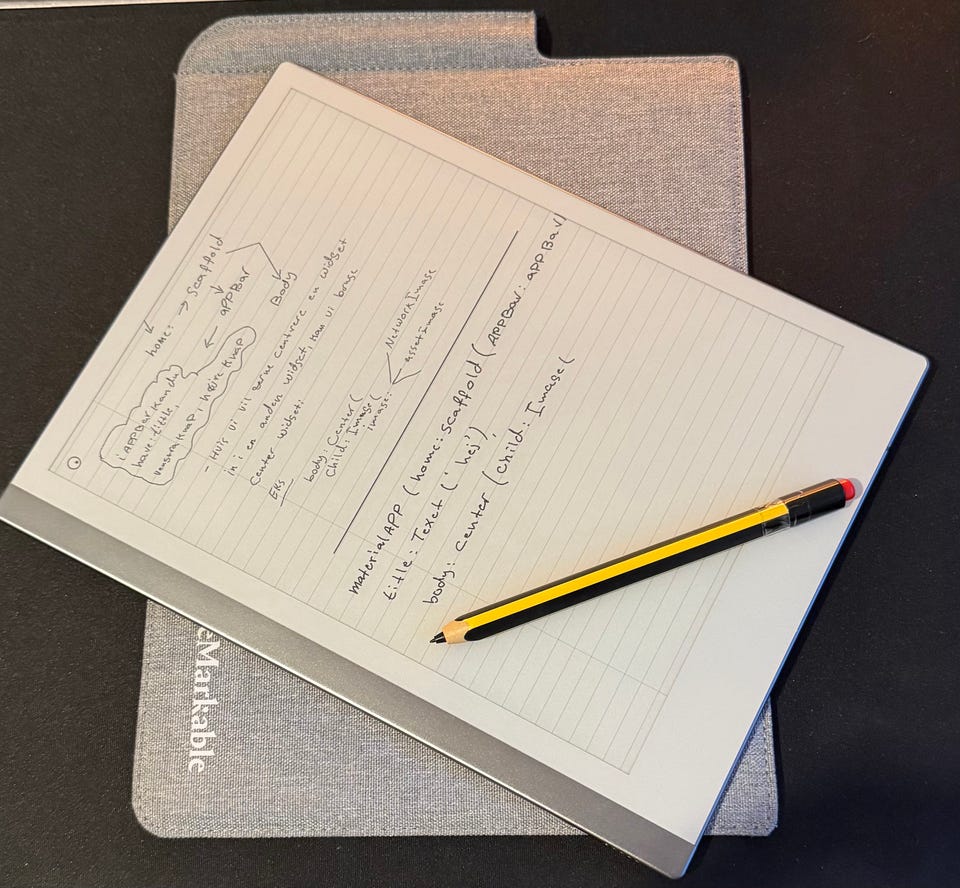 home: → Scaffold
appBar
Body
i APPBar kan du
have: tittle,
venstra knap, højre knap
- Hvis vi vil gerne centrere en widget
in i en anden widget, kan vi bruge
Center widget:
EKs
body: Center (
Child: Image (
image:
NetworkImage
assetImage
materialAPP (home: Scaffold (APPBar: appBar(
title: Text ('hej')
body: Center (child: Image (
reMarkable